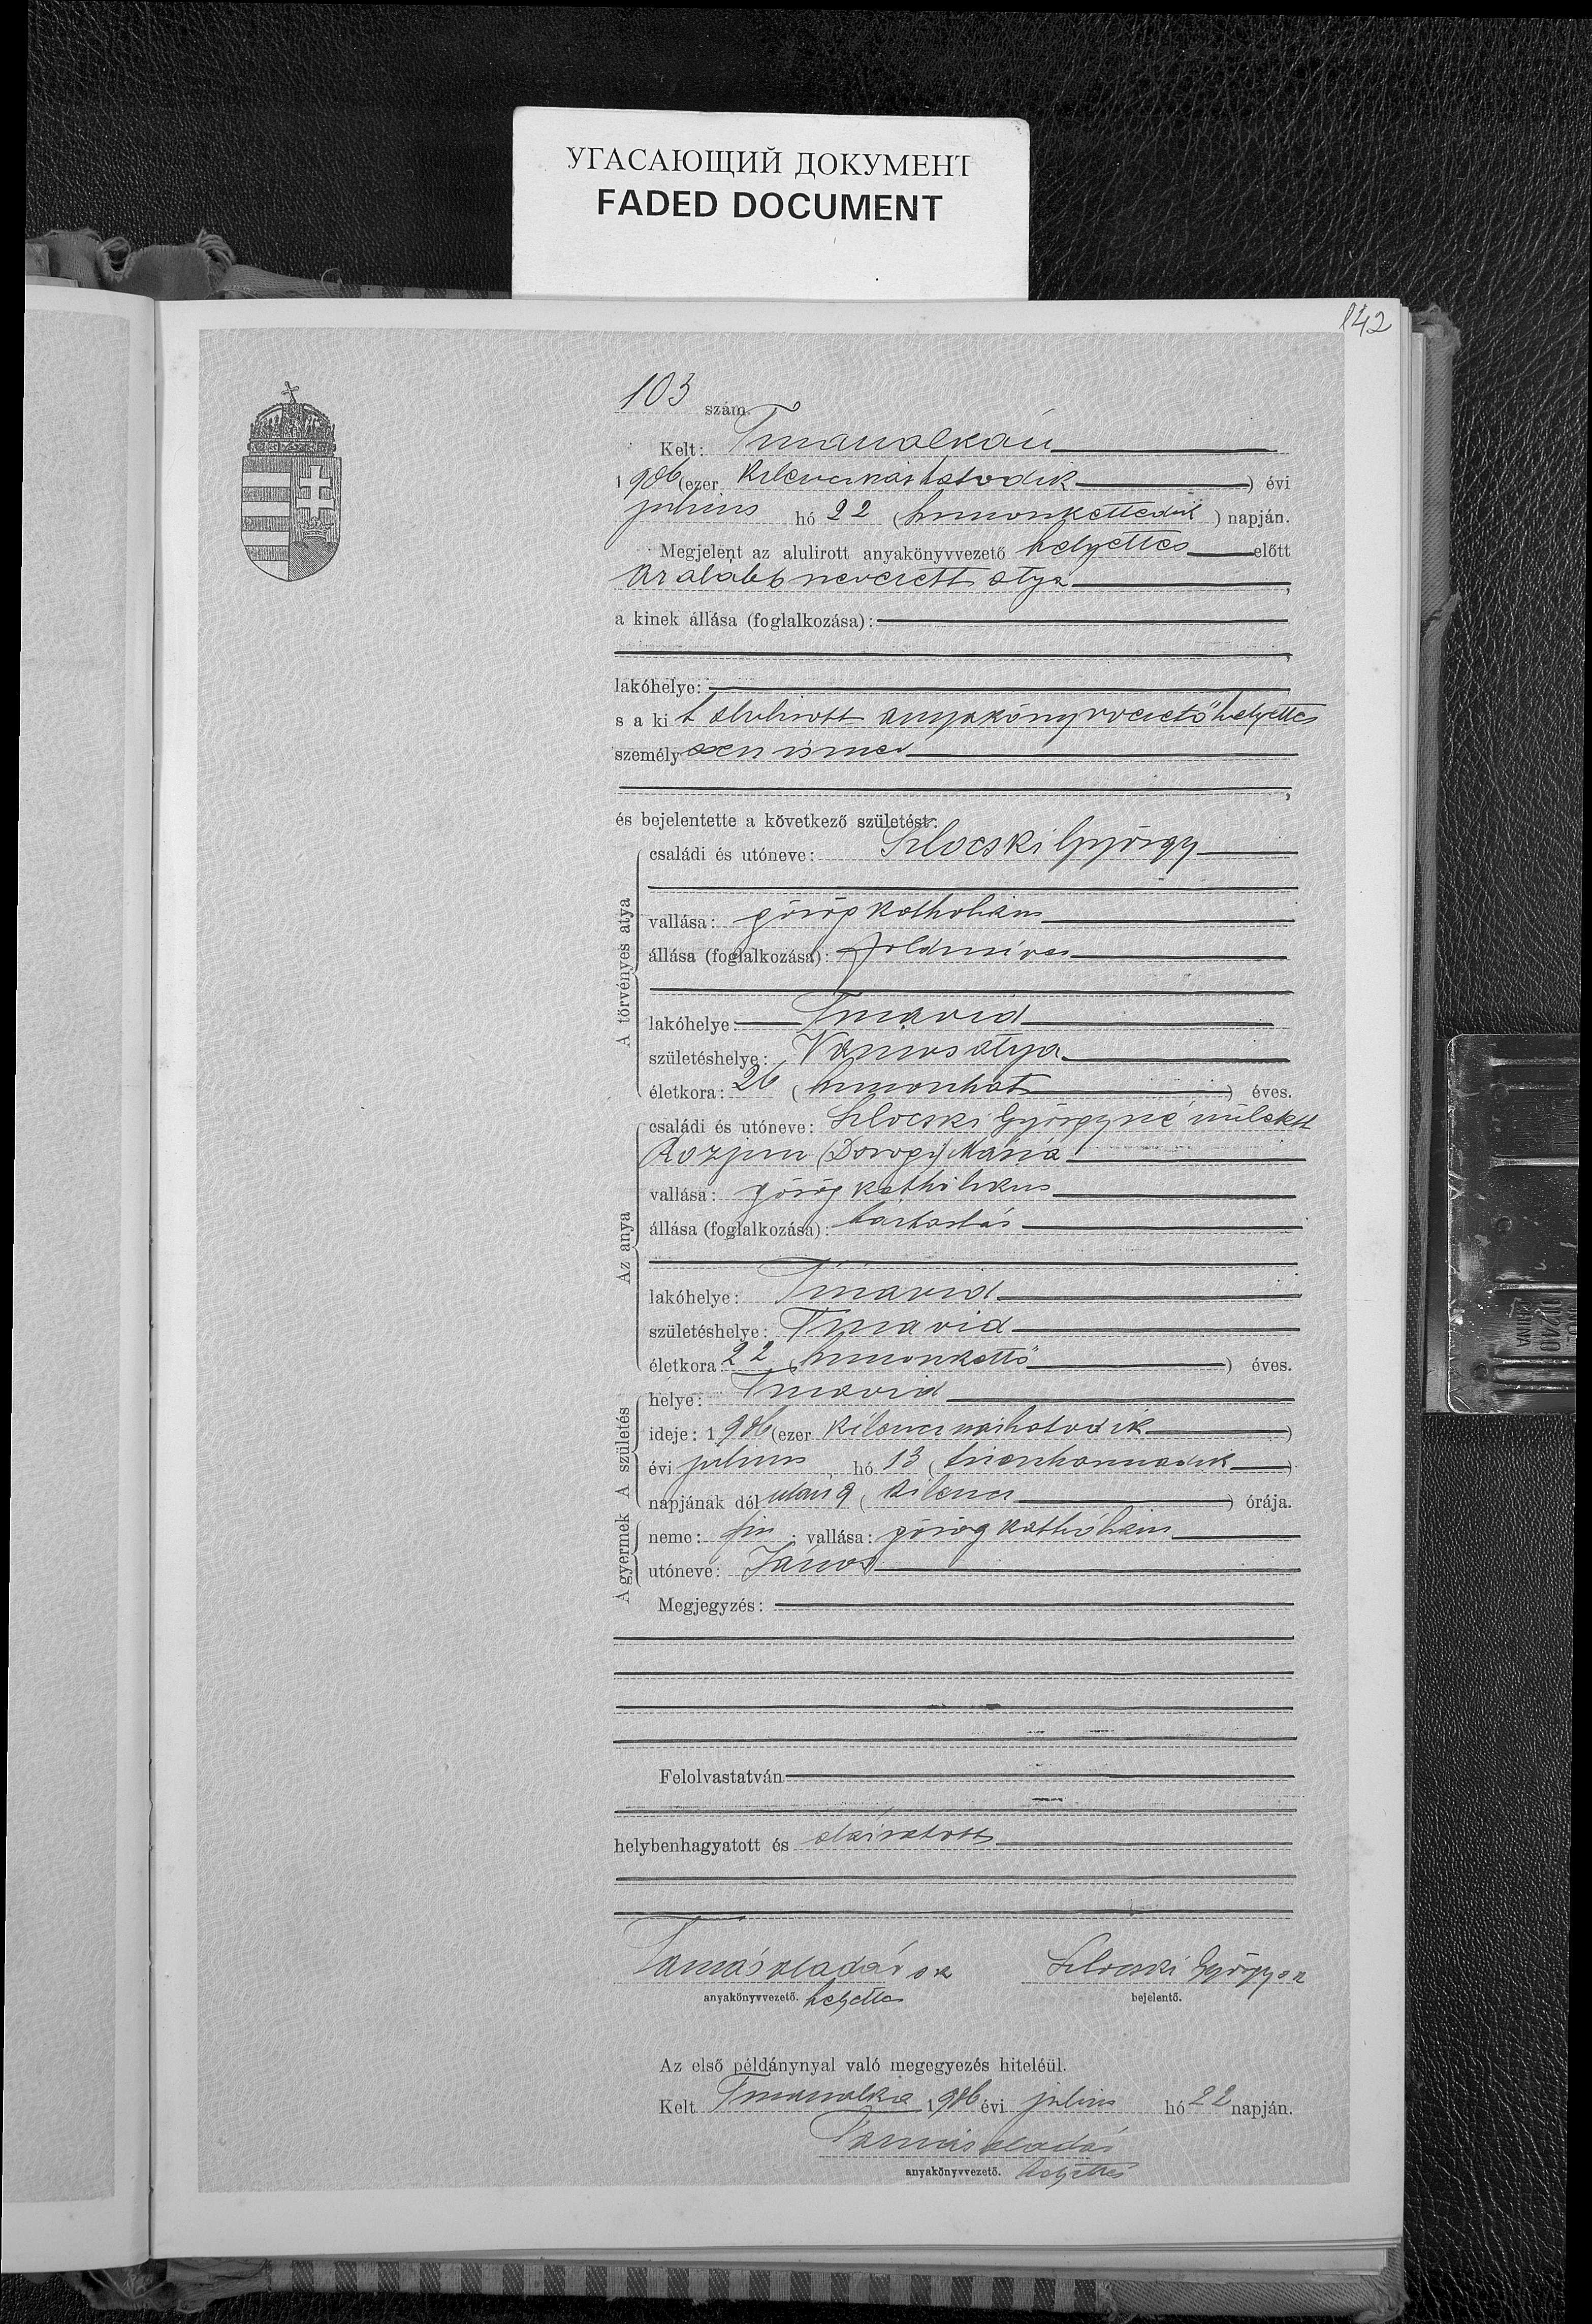 УГАСАЮЩИЙ ДОКУМЕНТ
FADED DOCUMENT
142
103 szám.
Kelt: Tiszaszalkán
1906 (ezer kilencszázhatodik) évi
julius hó 22 (huszonkettedik) napján.
Megjelent az alulirott anyakönyvvezető helyettes előtt
az alább nevezett atya,
a kinek állása (foglalkozása):
lakóhelye:
s a kit alulirott anyakönyvvezető helyettes
személyesen ismer,
és bejelentette a következő születést:
A törvényes atya
családi és utóneve: Szlocski György
vallása: görög katholikus
állása (foglalkozása): földmíves
lakóhelye: Tiszavid
születéshelye: Vámosatya
életkora: 26 (huszonhat) éves.
Az anya
családi és utóneve: Szlocski Györgyné született
(Dorogi) Mária
vallása: görög katholikus
állása (foglalkozása): háztartás
lakóhelye: Tiszavid
születéshelye: Tiszavid
életkora: 22 (huszonkettő) éves.
A születés
helye: Tiszavid
ideje: 1906 (ezer kilencszázhatodik)
évi julius hó 13 (tizenharmadik)
napjának délután 9 (kilenc) órája.
A gyermek
neme: fiu; vallása: görög katholikus
utóneve: János
Megjegyzés:
Felolvastatván
helybenhagyatott és aláiratott
Tamás Aladár sk Szlocski György sk
anyakönyvvezető. helyettes bejelentő.
Az első példánynyal való megegyezés hiteléül.
Kelt Tiszaszalka 1906 évi julius hó 22 napján.
Tamás Aladár
anyakönyvvezető. helyettes